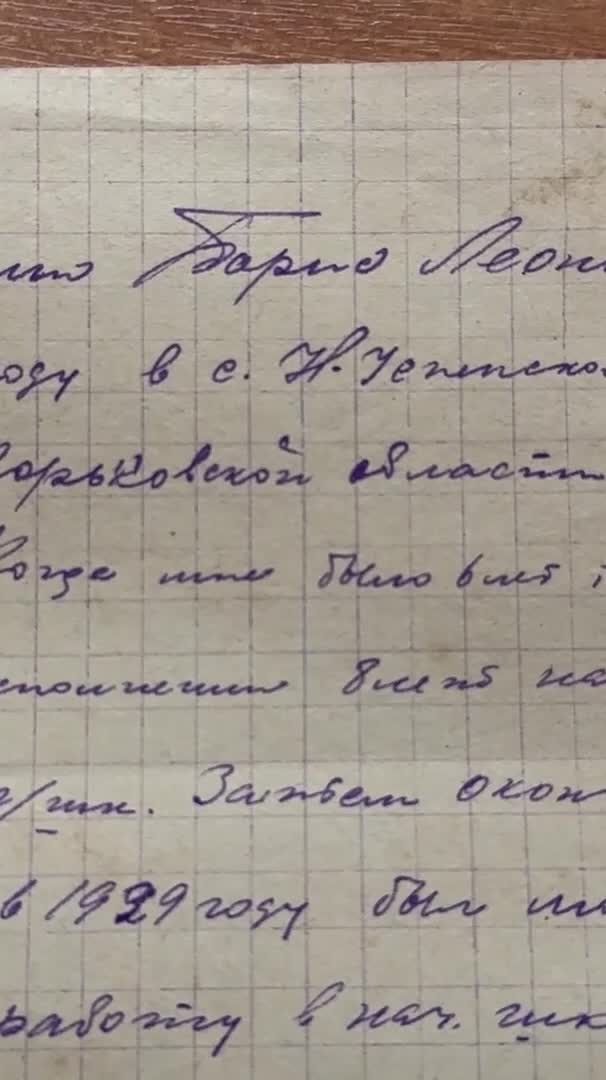 Барно Леон
оду в с. Н. Успенско
Харьковской области
Когда мне было 6 лет
исполнении 8 лет на
/шк. Затем окон
в 1929 году был
работу в нач. шк